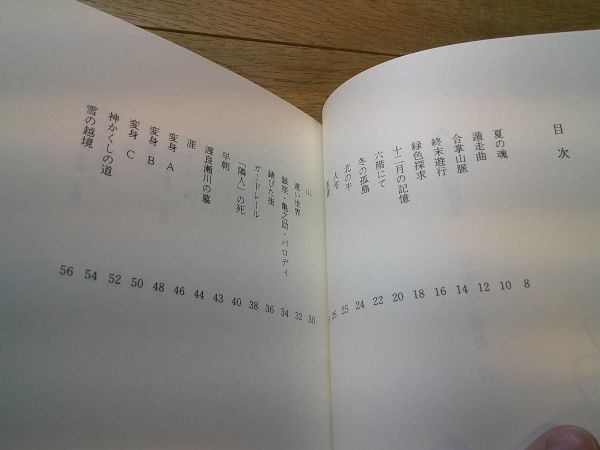 目次
夏の魂 8
遁走曲 10
合掌山脈 12
終末遊行 14
緑色探求 16
十二月の記憶 18
六階にて 20
冬の孤島 22
北の 24
25
26
山 30
遠い世界 32
銀座・亀之助・パロディ 34
錆びた街 36
ガードレール 38
「隣人」の死 40
早朝 43
渡良瀬川の墓 44
涯 46
変身 A 48
変身 B 50
変身 C 52
神かくしの道 54
雪の越境 56